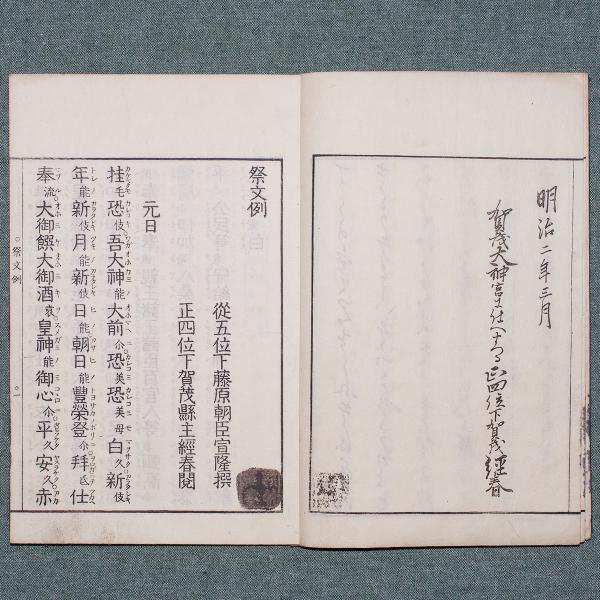 明治二年三月
賀茂大神宮に仕へまつる正四位下賀茂經春
祭文例
從五位下藤原朝臣宣隆撰
正四位下賀茂縣主經春閲
元日
挂毛恐伎吾大神能大前尒恐美恐美母白久新伎
年能新伎月能新伎日能朝日能豐榮登尒拜氐仕
奉流大御饌大御酒袁皇神能御心尒平久安久赤
○祭文例
○一